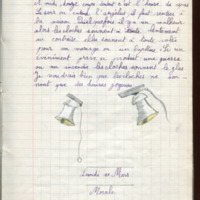 et midi, douze coups sonnent c'est l'heure de la soupe
Le soir on l'entend l'angelus il faut rentrer à
la maison. Quelquefois il y a un malheur
alors les cloches sonnent à toute
au contraire, elles sonnent à toute volée
pour un mariage ou un baptême. Si un
évènement grave se produit une guerre
ou un incendie les cloches sonnent le glas
Je voudrais bien que les cloches ne son-
nent que des heures joyeuses
Lundi 10 Mars
Morale